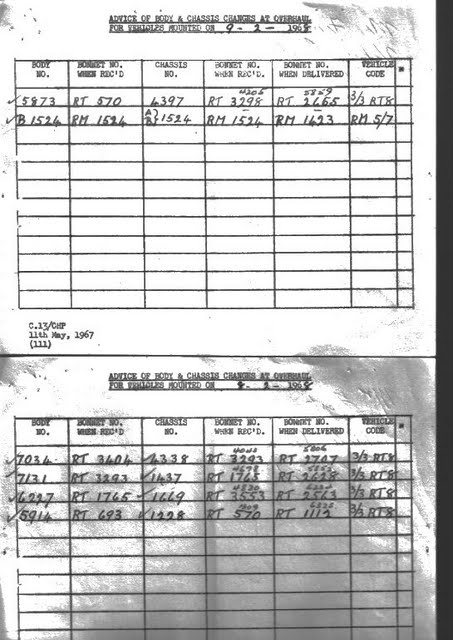 ADVICE OF BODY & CHASSIS CHANGES AT OVERHAUL
FOR VEHICLES MOUNTED ON 9 - 2 - 1968
BODY NO. BONNET NO. WHEN REC'D CHASSIS NO. BONNET NO. WHEN REC'D. BONNET NO. WHEN DELIVERED VEHICLE CODE *
4205 5829
✓5873 RT 570 4397 RT 3298 RT 2665 3/3 RT8
✓B 1524 RM 1524 A} B} 1524 RM 1524 RM 1423 RM 5/7
C.13/CHP
11th May, 1967
(111)
ADVICE OF BODY & CHASSIS CHANGES AT OVERHAUL
FOR VEHICLES MOUNTED ON 8 - 2 - 1968
BODY NO. BONNET NO. WHEN REC'D CHASSIS NO. BONNET NO. WHEN REC'D. BONNET NO. WHEN DELIVERED VEHICLE CODE *
✓7034 RT 3404 ✓4338 RT 3293 RT 2707 3/3 RT8
✓7131 RT 3293 ✓1437 RT 1765 RT 2628 3/3 RT8
✓6227 RT 1765 ✓1669 RT 3553 RT 2563 3/3 RT8
✓5914 RT 693 ✓1228 RT 570 RT 1112 3/3 RT8